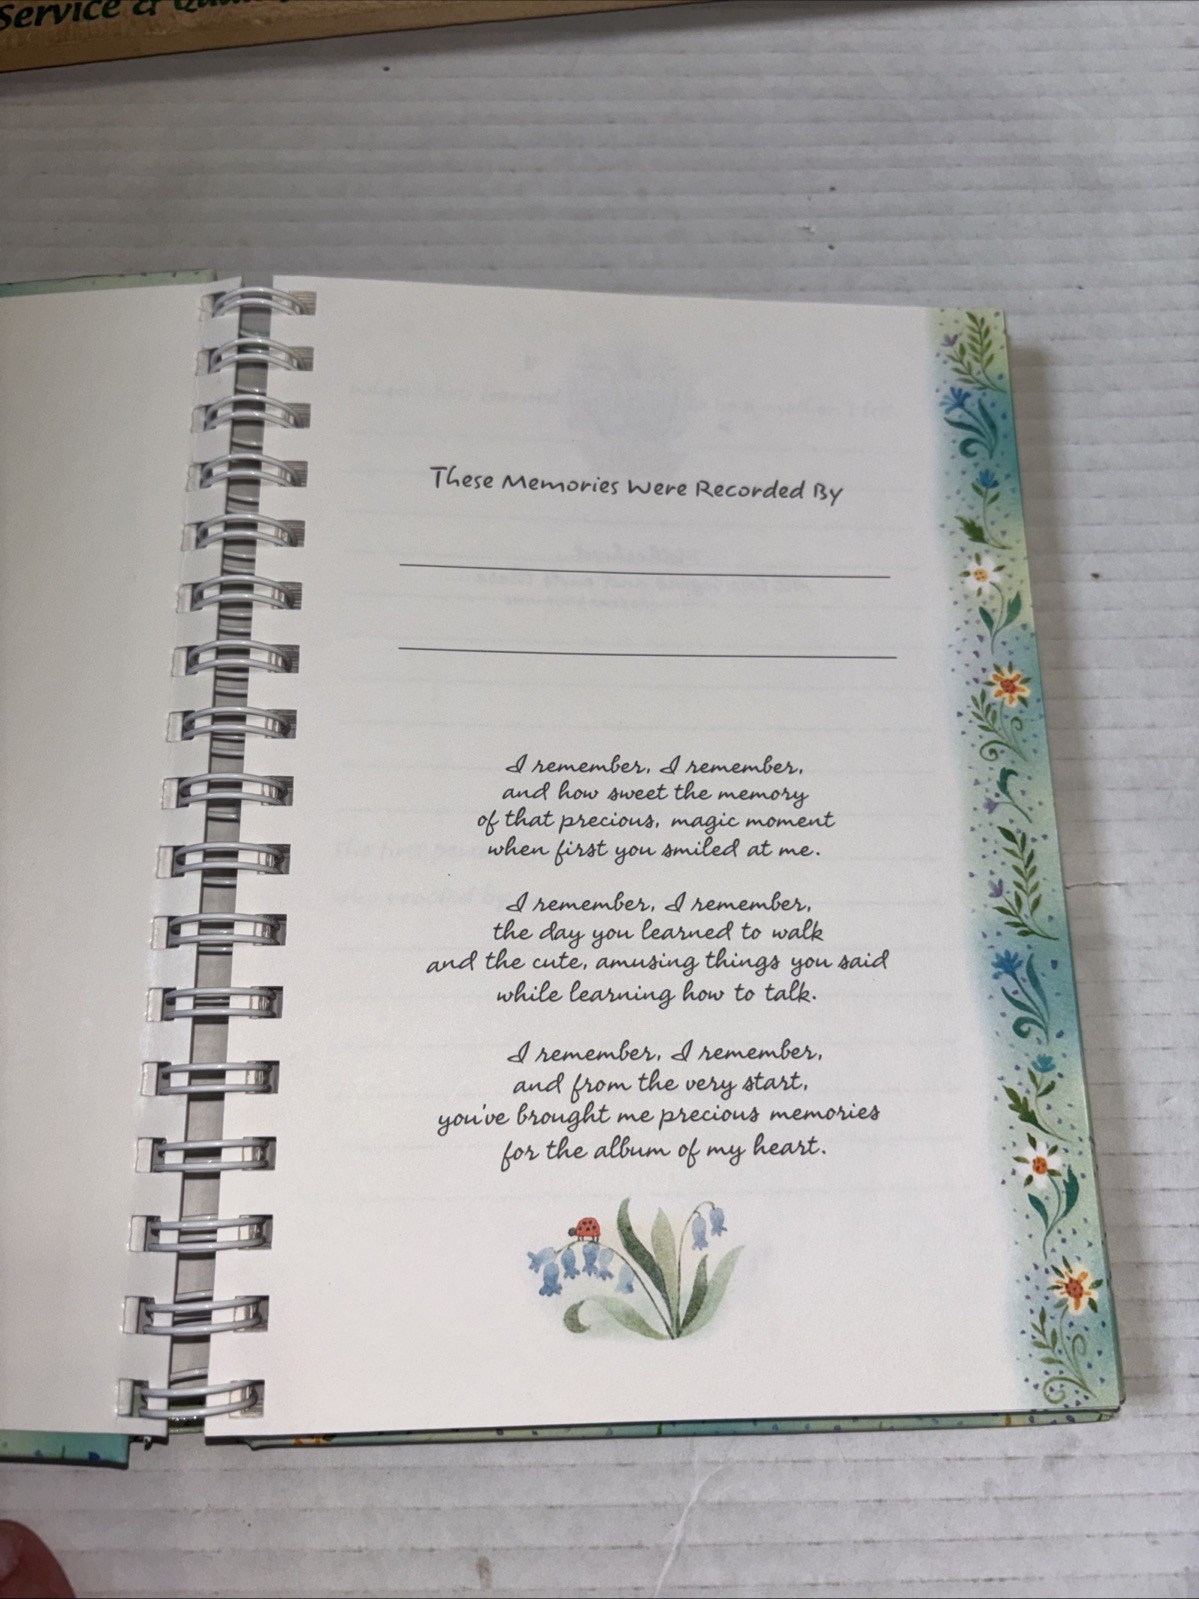 Service &
These Memories Were Recorded By
I remember, I remember,
and how sweet the memory
of that precious, magic moment
when first you smiled at me.
I remember, I remember,
the day you learned to walk
and the cute, amusing things you said
while learning how to talk.
I remember, I remember,
and from the very start,
you've brought me precious memories
for the album of my heart.